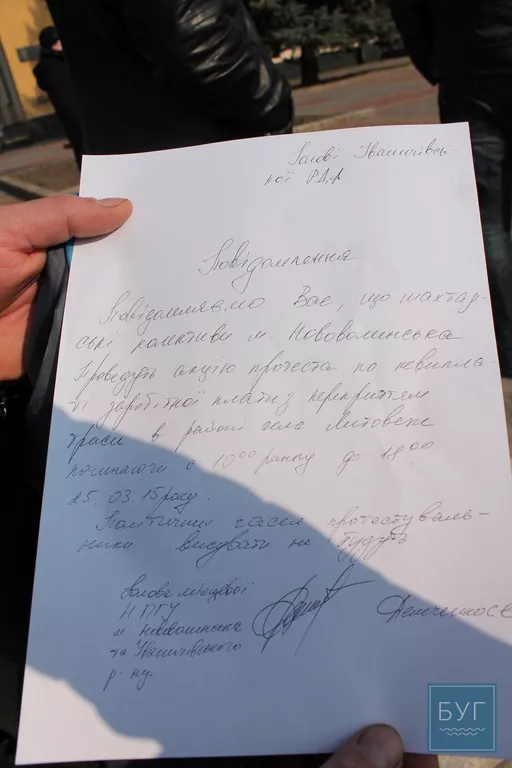 Голові Іваничівсь-
кої РДА
Повідомлення
Повідомляємо Вас, що шахтар-
ські колективи м. Нововолинська
проведуть акцію протеста по невипла-
ті заробітної плати з перекриттям
траси в районі села Литовеж
починаючи с 10⁰⁰ ранку до 18.⁰⁰
25.03.15 року.
Політичних гасел протестуваль-
ники висувати не будуть
Голова місцевої
НПГУ
м. Нововолинська
та Іваничівського
р-ну.
БУГ